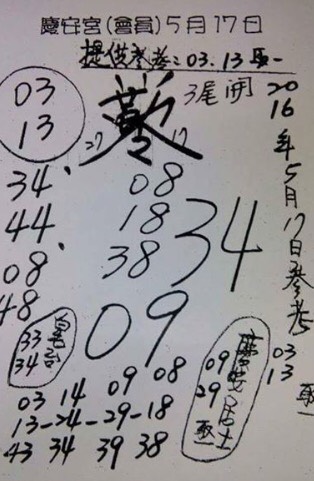 慶安宮(會員)5月17日
提供參考：03.13 取一
03
13
3尾開
27
17
2016年5月17日參考
03
13
取一
34
44
08
48
08
18
38
34
09
33
34
09
29
取
居士
03 14 09 08
13-24-29-18
43 34 39 38